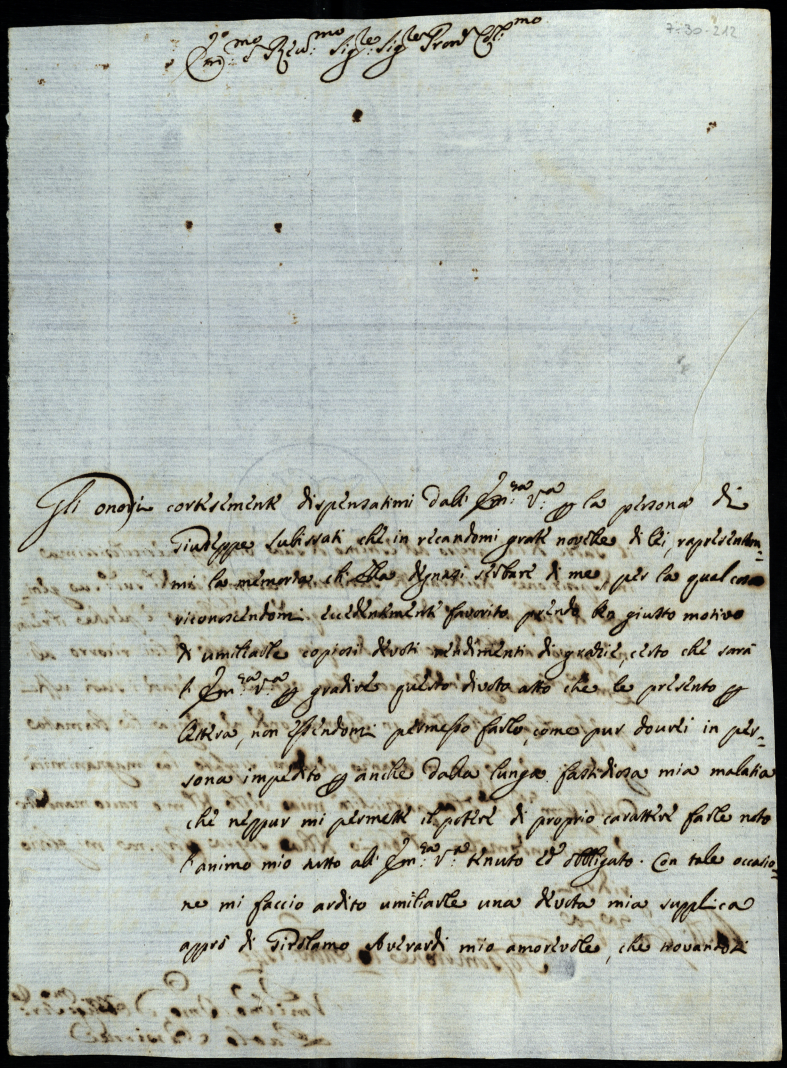 7-30-212
Em:mo e Rev:mo Sig:re Sig:re Pron Col:mo
Gli onori cortesemente dispensatimi dall' Em:za V:a p la persona di
Giuseppe che in recandomi grate novelle di lei, rapresentom=
mi la memoria ch Ella degnasi serbare di me, per la qual cosa
riconoscendomi eccedentemente favorito prendo ben giusto motivo
di umiliarle copiosi devoti rendimenti di grazie, certo che sarà
l' Em:za V:a p gradire questo divoto atto che le presento p
lettera, non essendomi permesso farlo, come pur dovrei in per=
sona impedito p anche dalla lunga fastidiosa mia malatia
che neppur mi permette il potere di proprio carattere farle noto
l'animo mio tutto all' Em:za V:a tenuto ed obbligato. Con tale occasio=
ne mi faccio ardito umiliarle una divota mia supplica
appro di Girolamo Averardi mio amorevole, che trovandosi